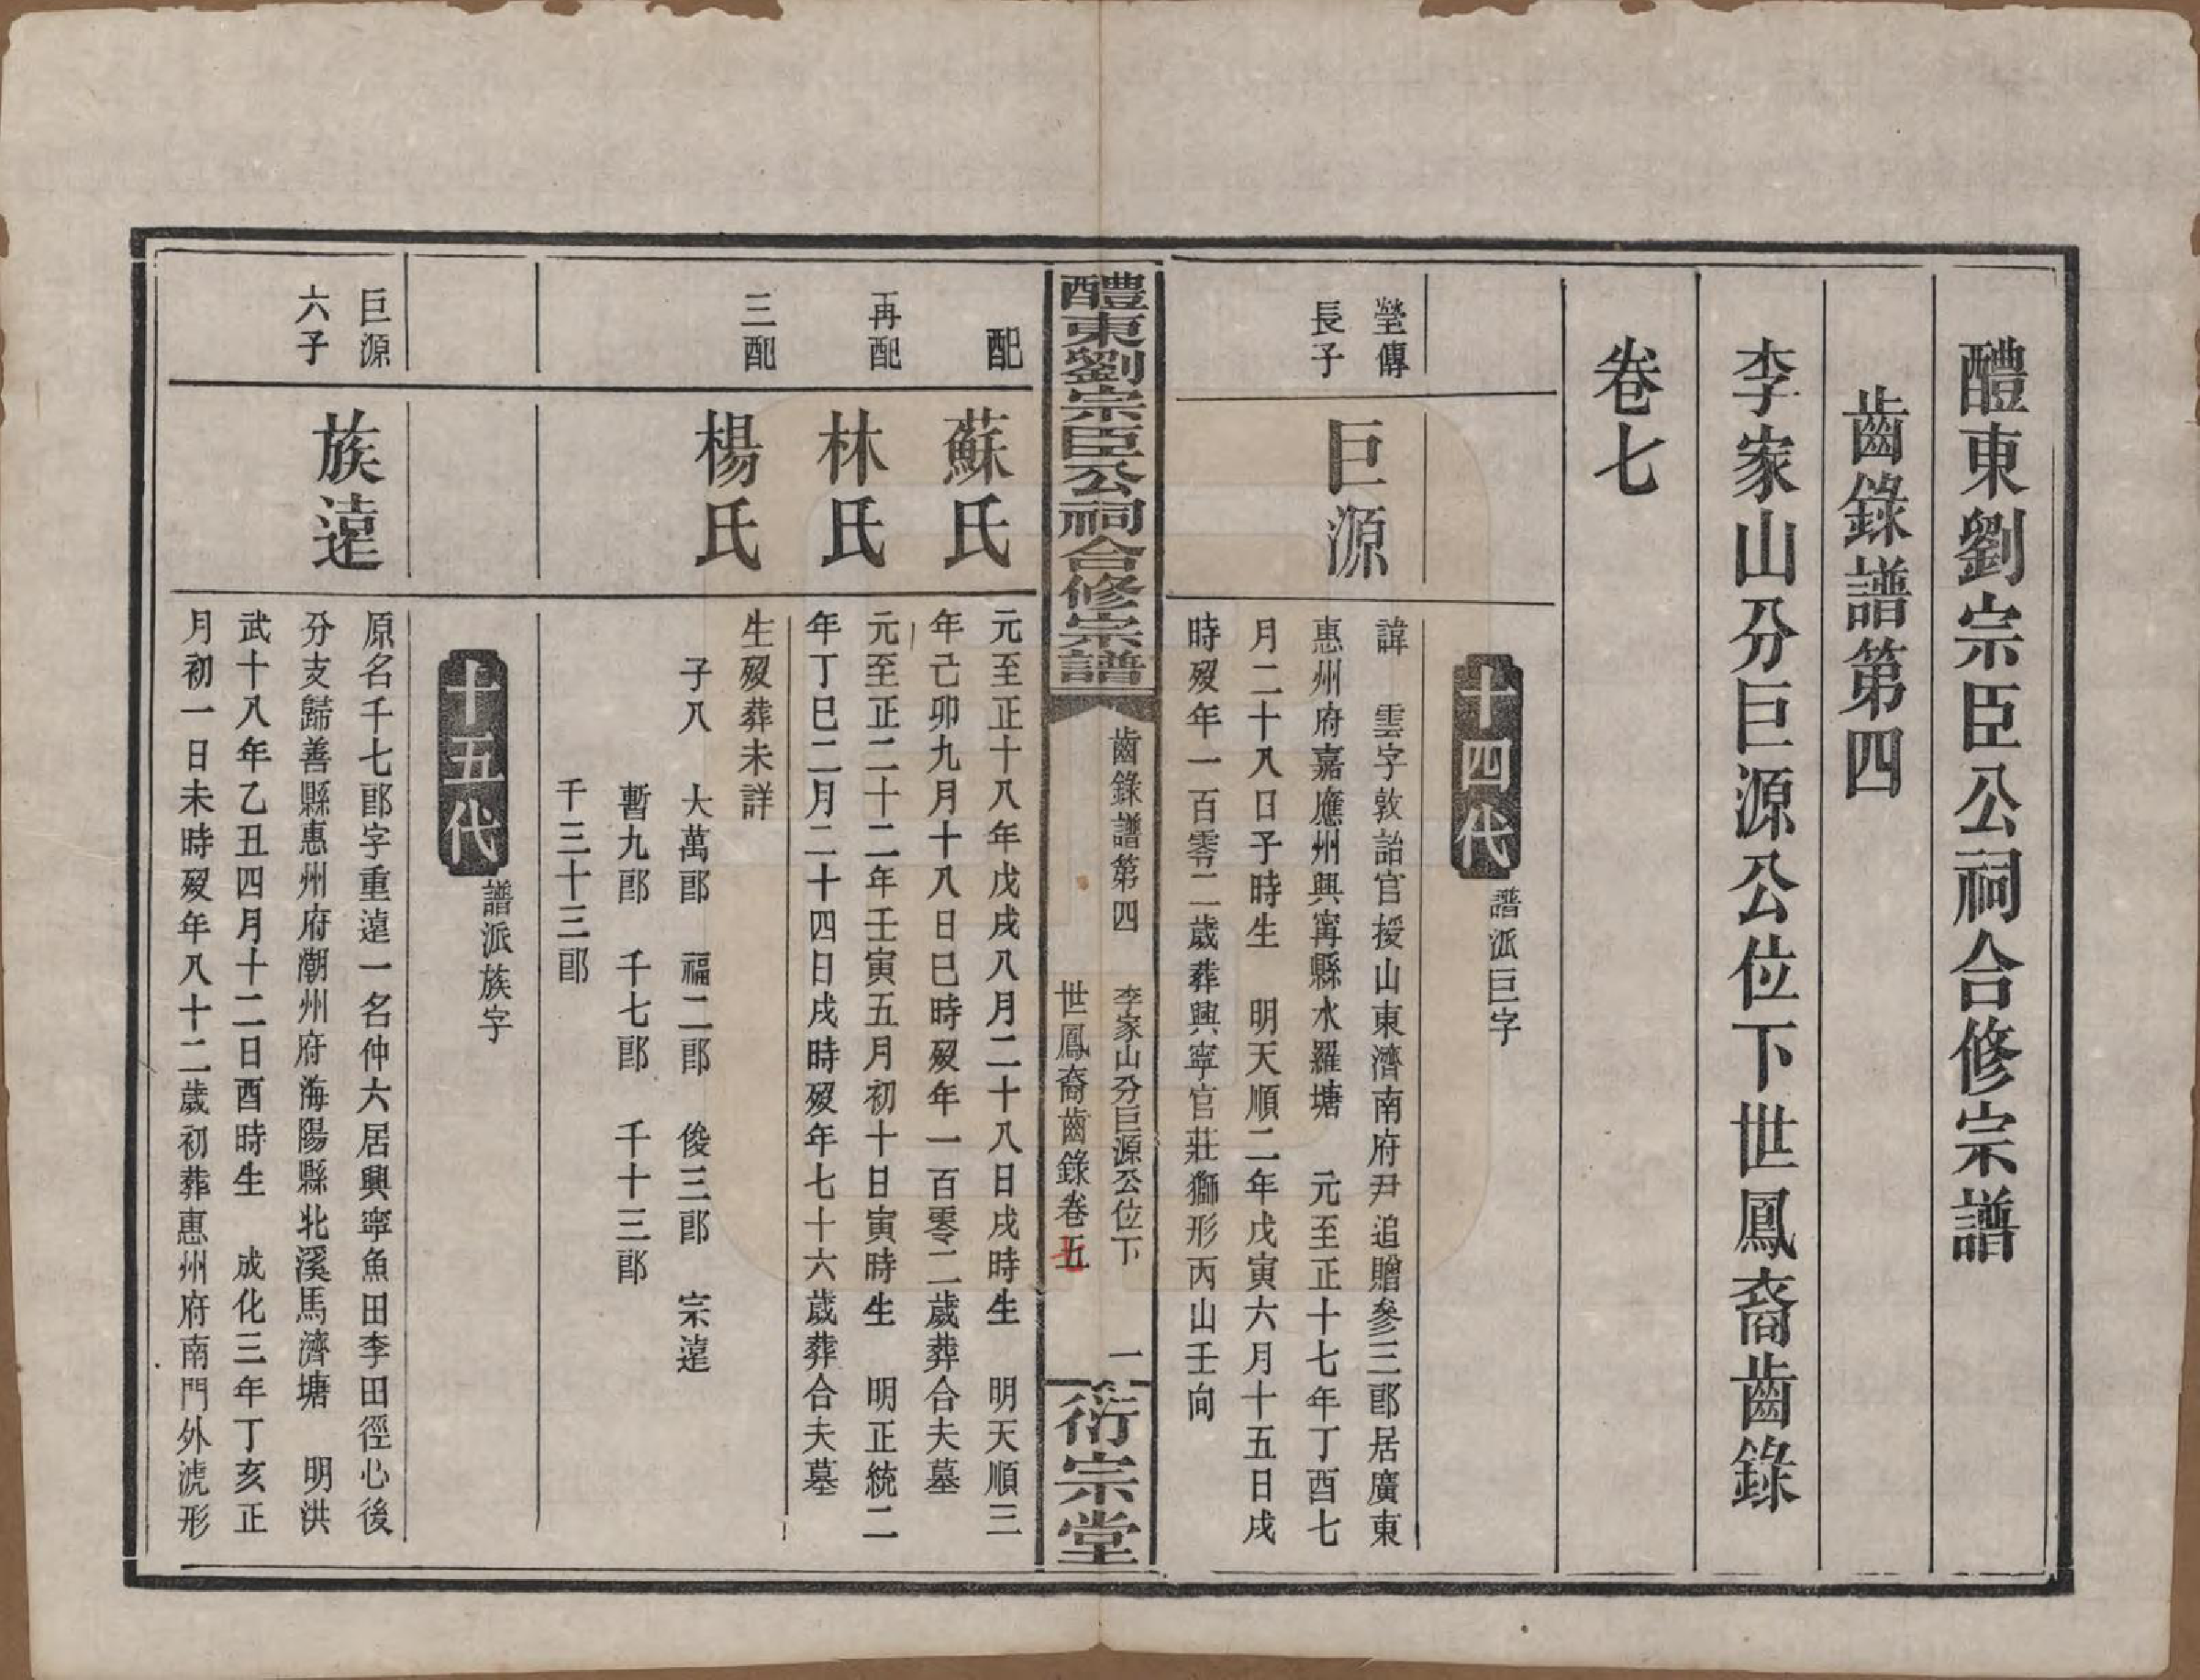 醴東劉宗臣公祠合修宗譜
齒錄譜第四
李家山分巨源公位下世鳳裔齒錄
卷七
十四代
譜派巨字
瑩傳
長子
巨源
諱　雲字敦詒官授山東濟南府尹追贈參三郎居廣東
惠州府嘉應州興甯縣水羅塘　元至正十七年丁酉七
月二十八日子時生　明天順二年戊寅六月十五日戌
時歿年一百零二歲葬興寧官莊獅形丙山壬向
醴東劉宗臣公祠合修宗譜
齒錄譜第四
李家山分巨源公位下
世鳳裔齒錄卷五
七
一
衍宗堂
配
蘇氏
元至正十八年戊戌八月二十八日戌時生　明天順三
年己卯九月十八日巳時歿年一百零二歲葬合夫墓
再配
林氏
元至正二十二年壬寅五月初十日寅時生　明正統二
年丁巳二月二十四日戌時歿年七十六歲葬合夫墓
三配
楊氏
生歿葬未詳
子八　大萬郎　福二郎　俊三郎　宗遠
暫九郎　千七郎　千十三郎
千三十三郎
十五代
譜派族字
巨源
六子
族遠
原名千七郎字重遠一名仲六居興寧魚田李田徑心後
分支歸善縣惠州府潮州府海陽縣北溪馬濟塘　明洪
武十八年乙丑四月十二日酉時生　成化三年丁亥正
月初一日未時歿年八十二歲初葬惠州府南門外淲形